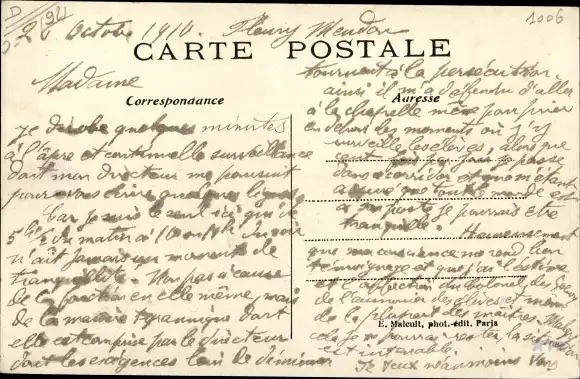 D
92
1006
26 Octobre 1910. Fleury Meudon
CARTE POSTALE
Correspondance
Adresse
Madame
je dérobe quelques minutes
à l'âpre et continuelle surveillance
dont mon directeur me poursuit
pour vous écrire quelques lignes.
Car je suis le seul ici qui de
5h du matin à 10 du soir
n'ait jamais un moment de
tranquillité. Non pas à cause
de la fonction en elle même, mais
de la manière tyrannique dont
elle est comprise par le directeur
dont les exigences loin de diminuer
tournent à la persécution.
ainsi il m'a défendu d'aller
à la chapelle même pour prier
en dehors des moments où j'y
surveille les élèves, alors que
je passe
dans corridor et qu'on étant
assuré que tout le monde est
à sa place je pourrais être
tranquille.
Heureusement
que ma conscience me rend bon
témoignage et que j'ai l'estime
et l'affection du
de l'aumônier des élèves et même
de la plupart des maîtres. Malgré
cela je ne pourrai rester, la situation
est intenable.
Je veux néanmoins vous
E. Malcuit, phot.-édit. Paris